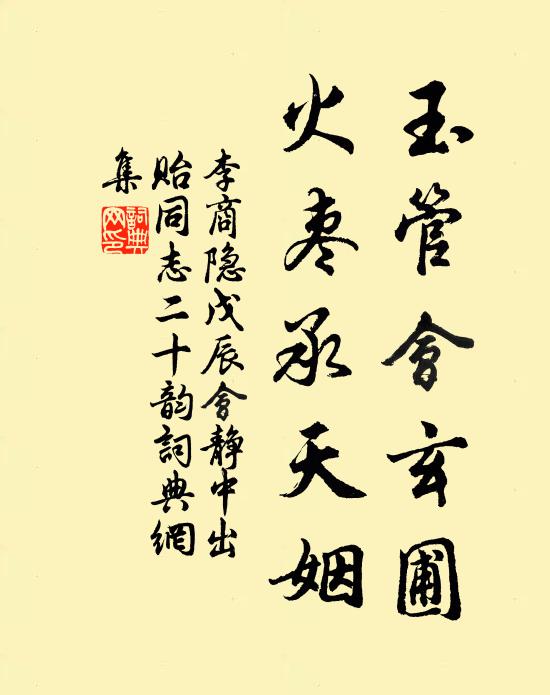 玉管會玄圃
火枣承天姻
李商隐戊辰會静中出
貽同志二十韵詞典網
集
詞典网印